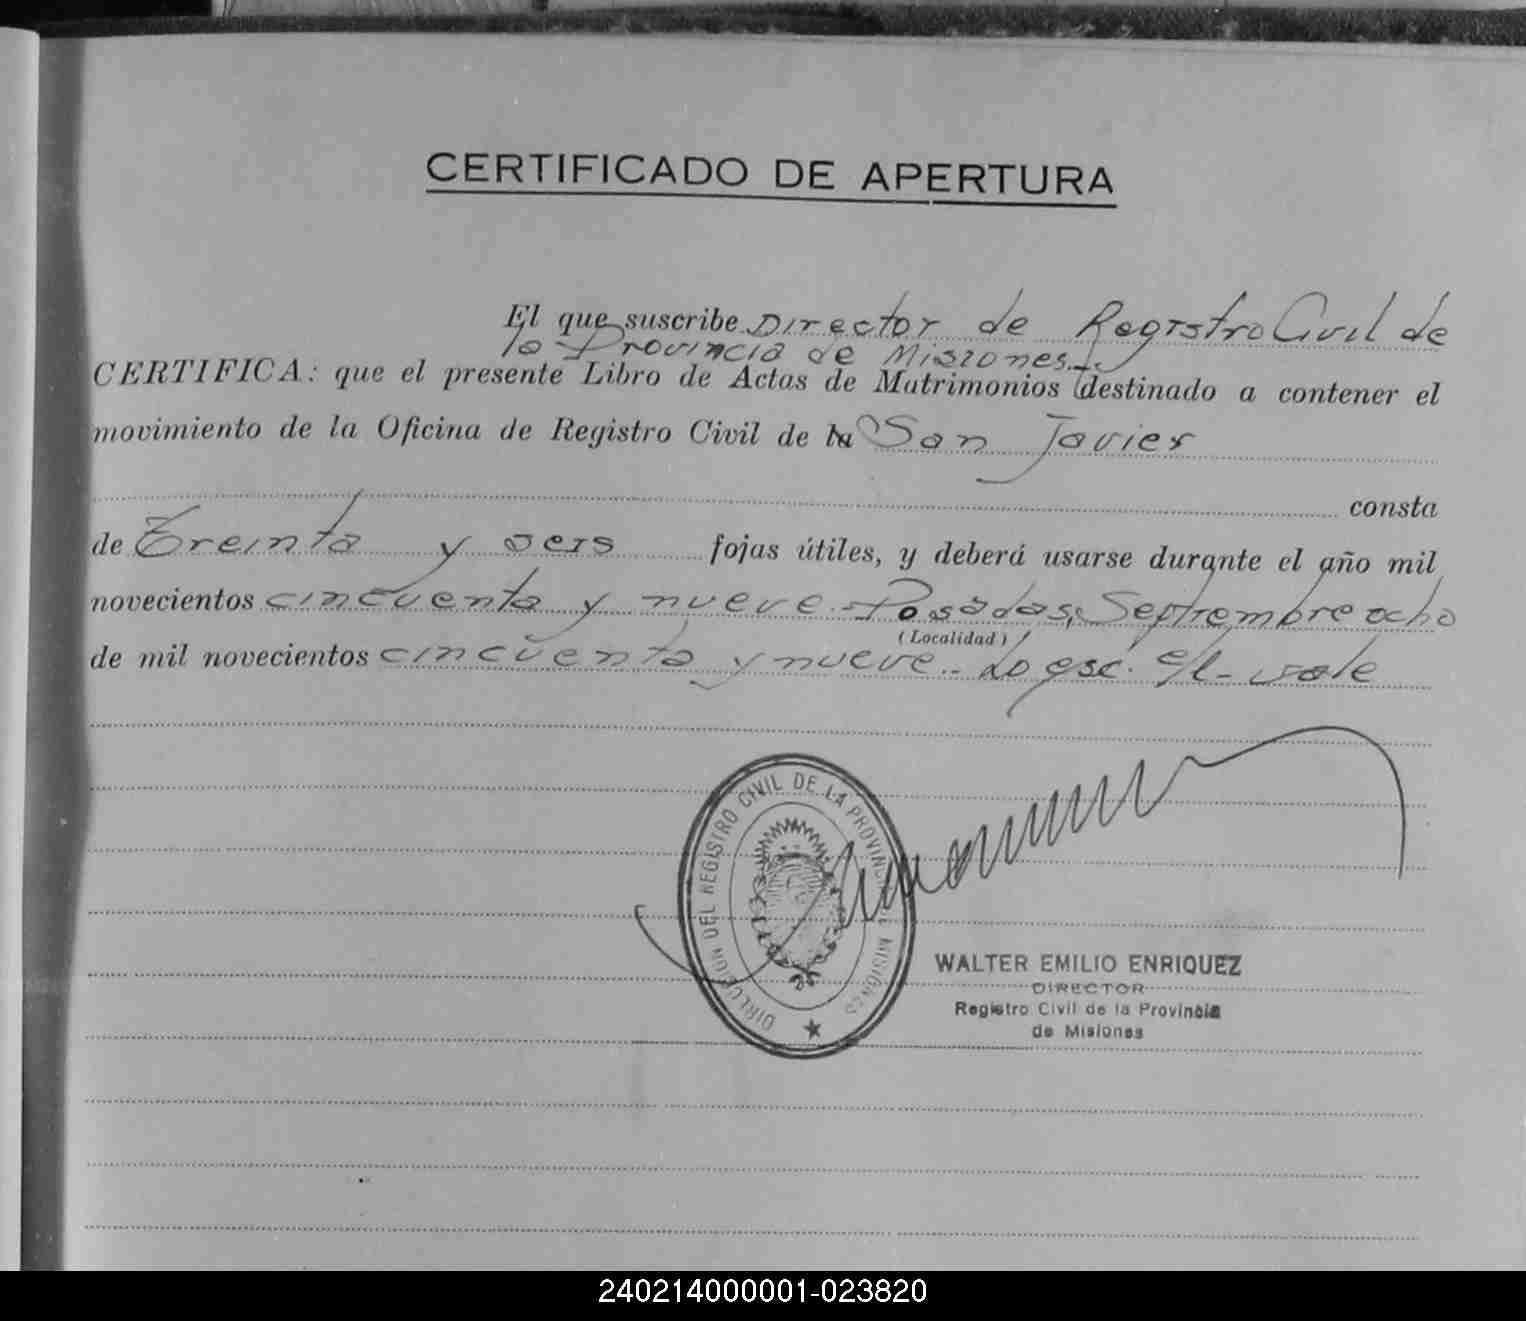 CERTIFICADO DE APERTURA
El que suscribe Director de Registro Civil de
la Provincia de Misiones.-
CERTIFICA: que el presente Libro de Actas de Matrimonios destinado a contener el
movimiento de la Oficina de Registro Civil de la San Javier
consta
de Treinta y seis fojas útiles, y deberá usarse durante el año mil
novecientos cincuenta y nueve.- Posadas, Septiembre ocho
(Localidad)
de mil novecientos cincuenta y nueve.. Lo esc. e/l - vale
DIRECCION DEL REGISTRO CIVIL DE LA PROVINCIA DE MISIONES
WALTER EMILIO ENRIQUEZ
DIRECTOR
Registro Civil de la Provincia
de Misiones
240214000001-023820